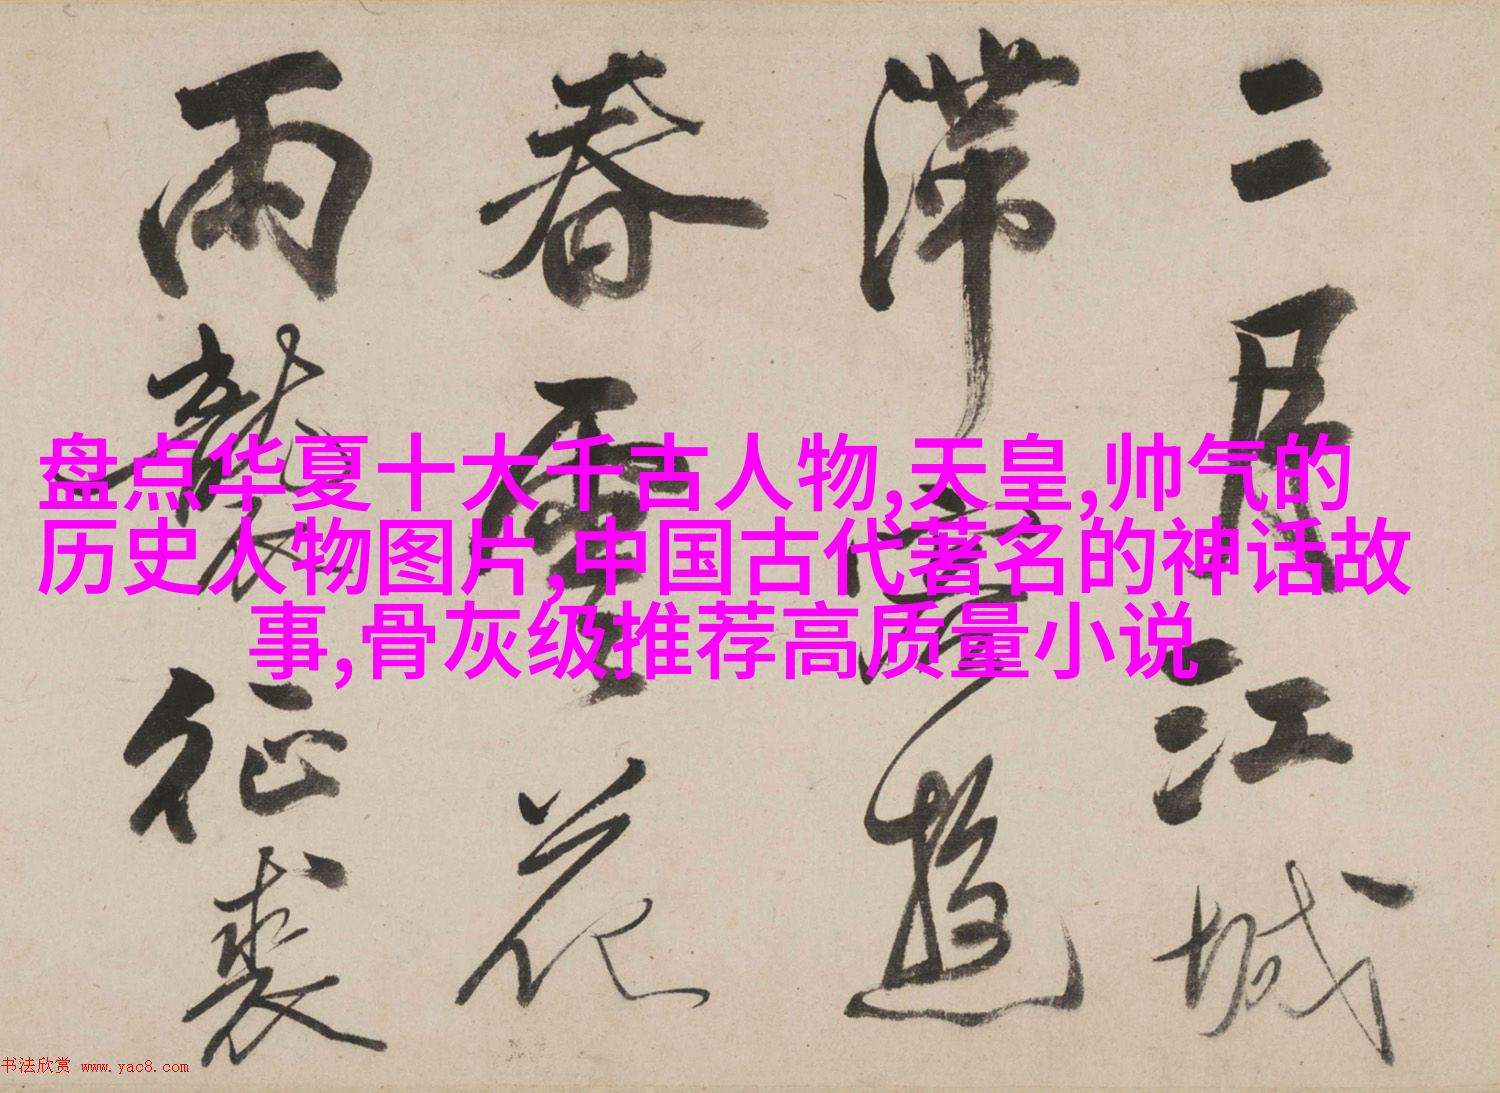 盘点华夏十大千古人物,天皇,帅气的
历史人物图片,中国古代著名的神话故
事,骨灰级推荐高质量小说
二月江城
滯遊
春雲花
雨襲征裘
书法欣赏 www.yac8.com